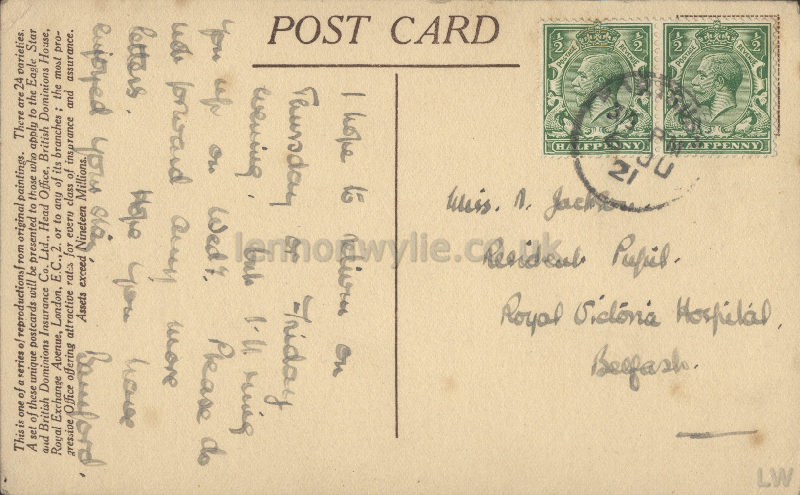 POST CARD
This is one of a series of reproductions from original paintings. There are 24 varieties.
A set of these unique postcards will be presented to those who apply to the Eagle Star
and British Dominions Insurance Co. Ltd., Head Office, British Dominions House,
Royal Exchange Avenue, London, E.C., 2. or to any of its branches; the most pro-
gressive Office offering attractive rates for every class of insurance and assurance.
Assets exceed Nineteen Millions.
I hope to return on
Thursday or Friday
evening. but I'll ring
you up on Wed?. Please do
not forward any more
letters. Hope you have
enjoyed your stay.
½ POSTAGE REVENUE ½
HALFPENNY
½ POSTAGE REVENUE ½
HALFPENNY
JU
21
Miss. Jackson
Resident Pupil.
Royal Victoria Hospital,
Belfast.
lennonwylie.co.uk
LW